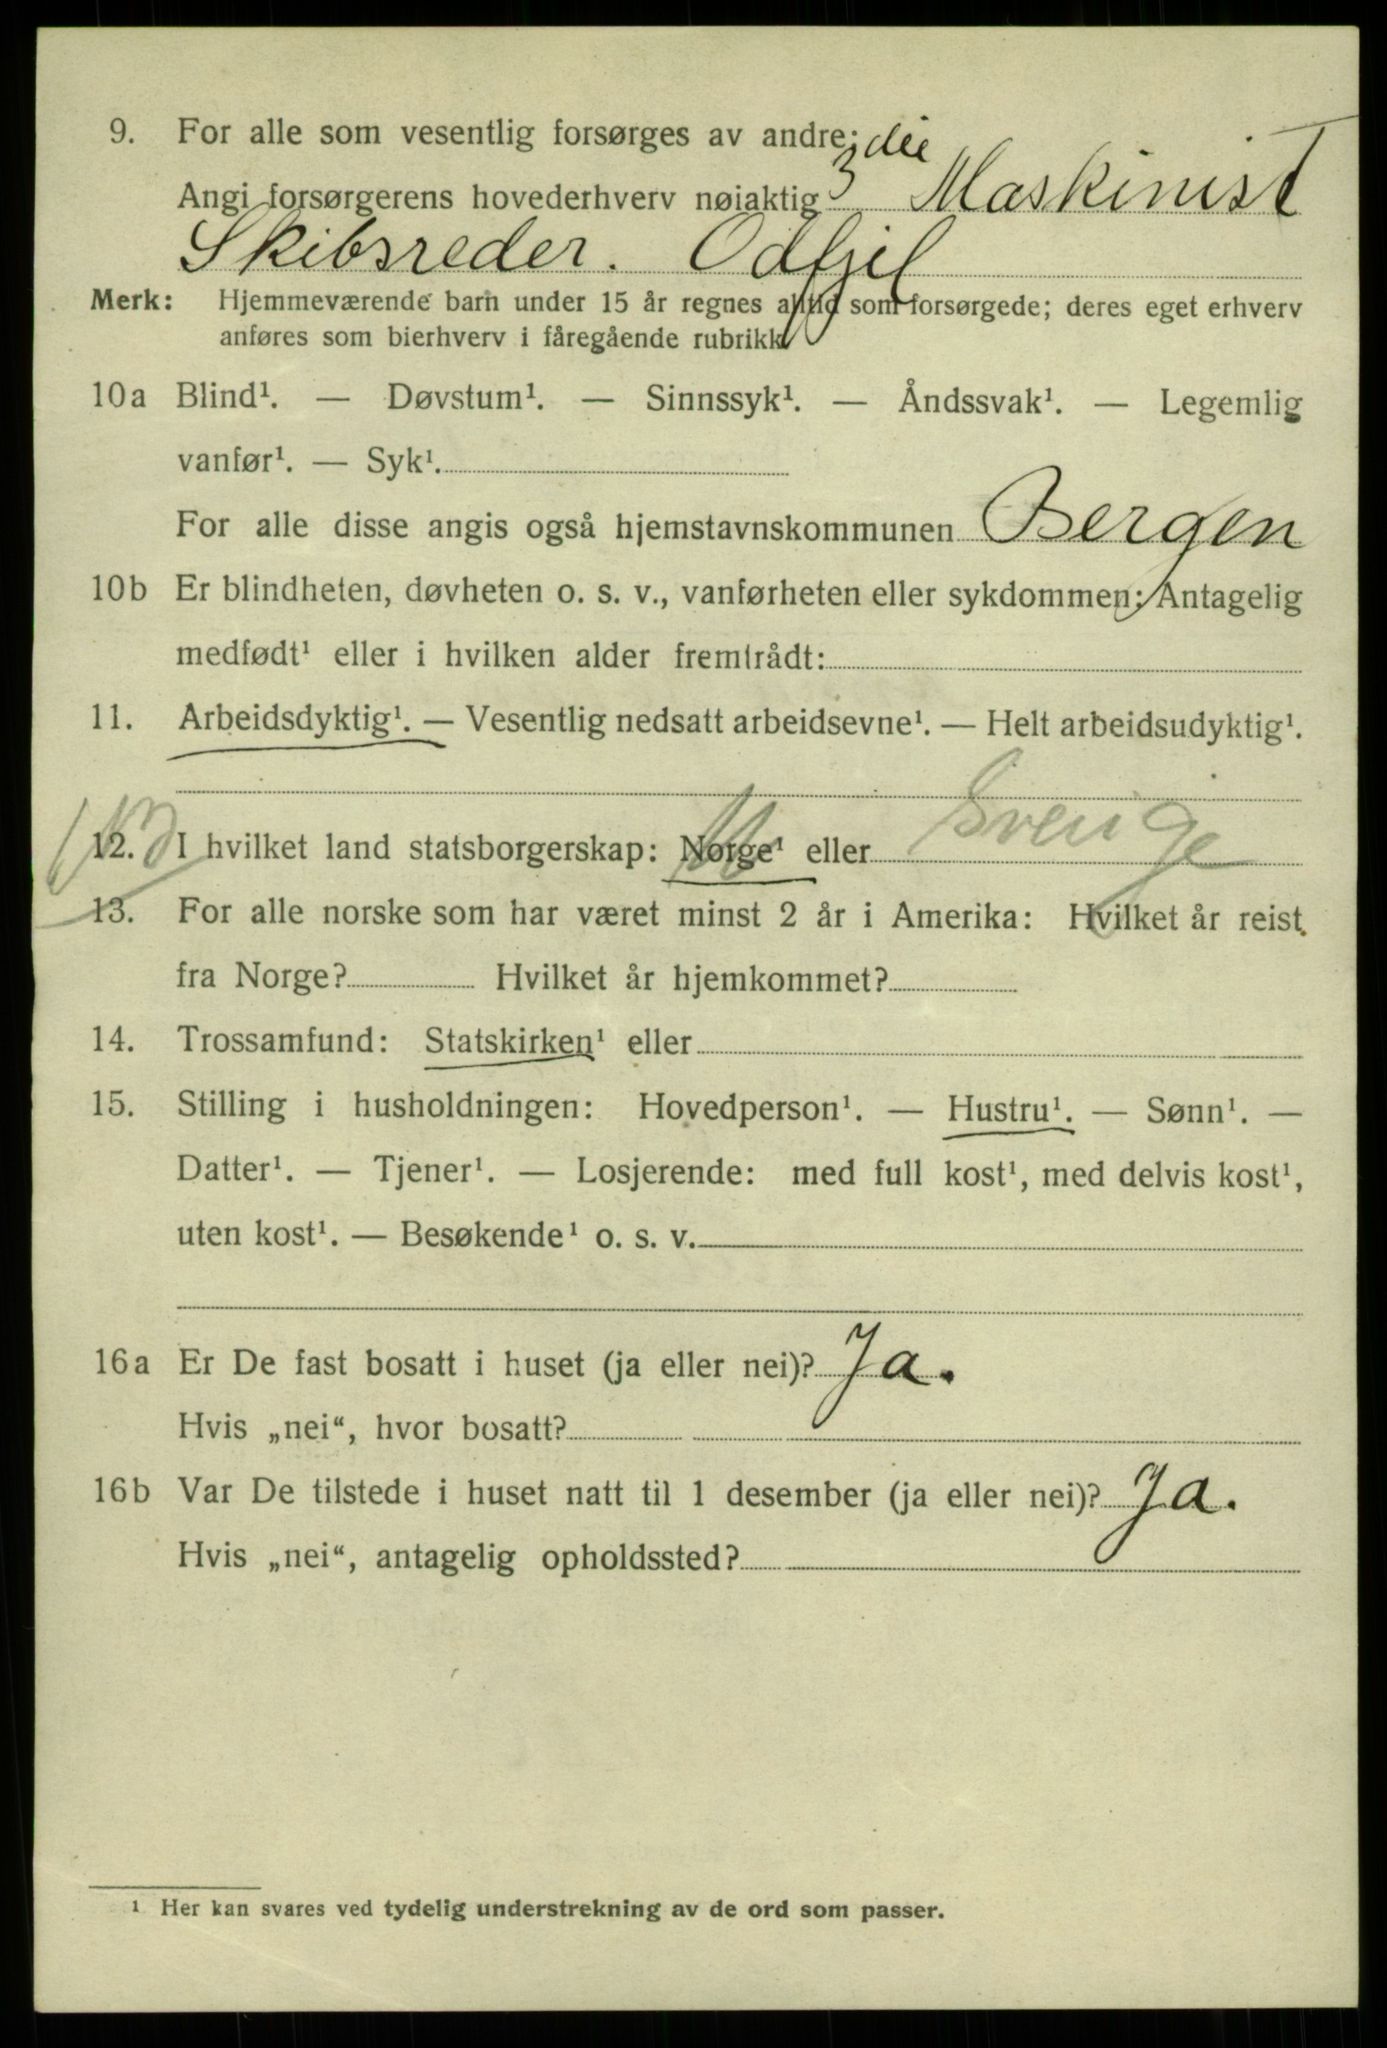 9. For alle som vesentlig forsørges av andre:
Angi forsørgerens hovederhverv nøiaktig 3die Maskinist
Skibsreder. Odfjel
Merk: Hjemmeværende barn under 15 år regnes alltid som forsørgede; deres eget erhverv
anføres som bierhverv i fåregående rubrikk.
10a Blind¹. — Døvstum¹. — Sinnssyk¹. — Åndssvak¹. — Legemlig
vanfør¹. — Syk¹.
For alle disse angis også hjemstavnskommunen Bergen
10b Er blindheten, døvheten o. s. v., vanførheten eller sykdommen: Antagelig
medfødt¹ eller i hvilken alder fremtrådt:
11. Arbeidsdyktig¹. — Vesentlig nedsatt arbeidsevne¹. — Helt arbeidsudyktig¹.
12. I hvilket land statsborgerskap: Norge¹ eller Sverige
13. For alle norske som har været minst 2 år i Amerika: Hvilket år reist
fra Norge? Hvilket år hjemkommet?
14. Trossamfund: Statskirken¹ eller
15. Stilling i husholdningen: Hovedperson¹. — Hustru¹. — Sønn¹. —
Datter¹. — Tjener¹. — Losjerende: med full kost¹, med delvis kost¹,
uten kost¹. — Besøkende¹ o. s. v.
16a Er De fast bosatt i huset (ja eller nei)? Ja.
Hvis „nei“, hvor bosatt?
16b Var De tilstede i huset natt til 1 desember (ja eller nei)? Ja.
Hvis „nei“, antagelig opholdssted?
¹ Her kan svares ved tydelig understrekning av de ord som passer.